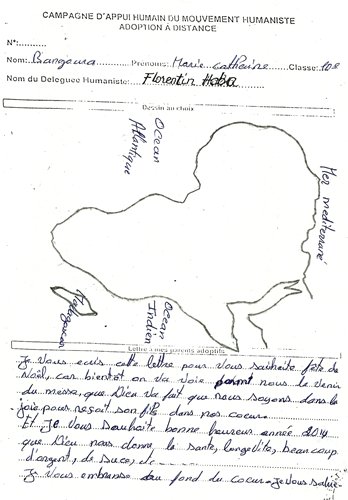 CAMPAGNE D'APPUI HUMAIN DU MOUVEMENT HUMANISTE
ADOPTION A DISTANCE
N°:
Nom: Bangoura Prénoms: Marie catherine Classe: 10e
Nom du Deleguee Humaniste: Florentin Haba
Dessin au choix
Ocean
Atlantique
Mer mediterrané
Madagascar
Ocean
Indien
Lettre a mes parents adoptifs
Je vous ecris cette lettre pour vous souhaite fete de
Noël, car bientot on va voie nous le venir
du messe, que Dieu va fait que nous soyons dans la
joie pour reçoit son fils dans nos coeur.
Et je vous souhaite bonne heureux année 2014
que Dieu nous donne la sante, longevite, beaucoup
d'argent, de suce, etc
Je vous embrasse du fond du coeur. Je vous salue.